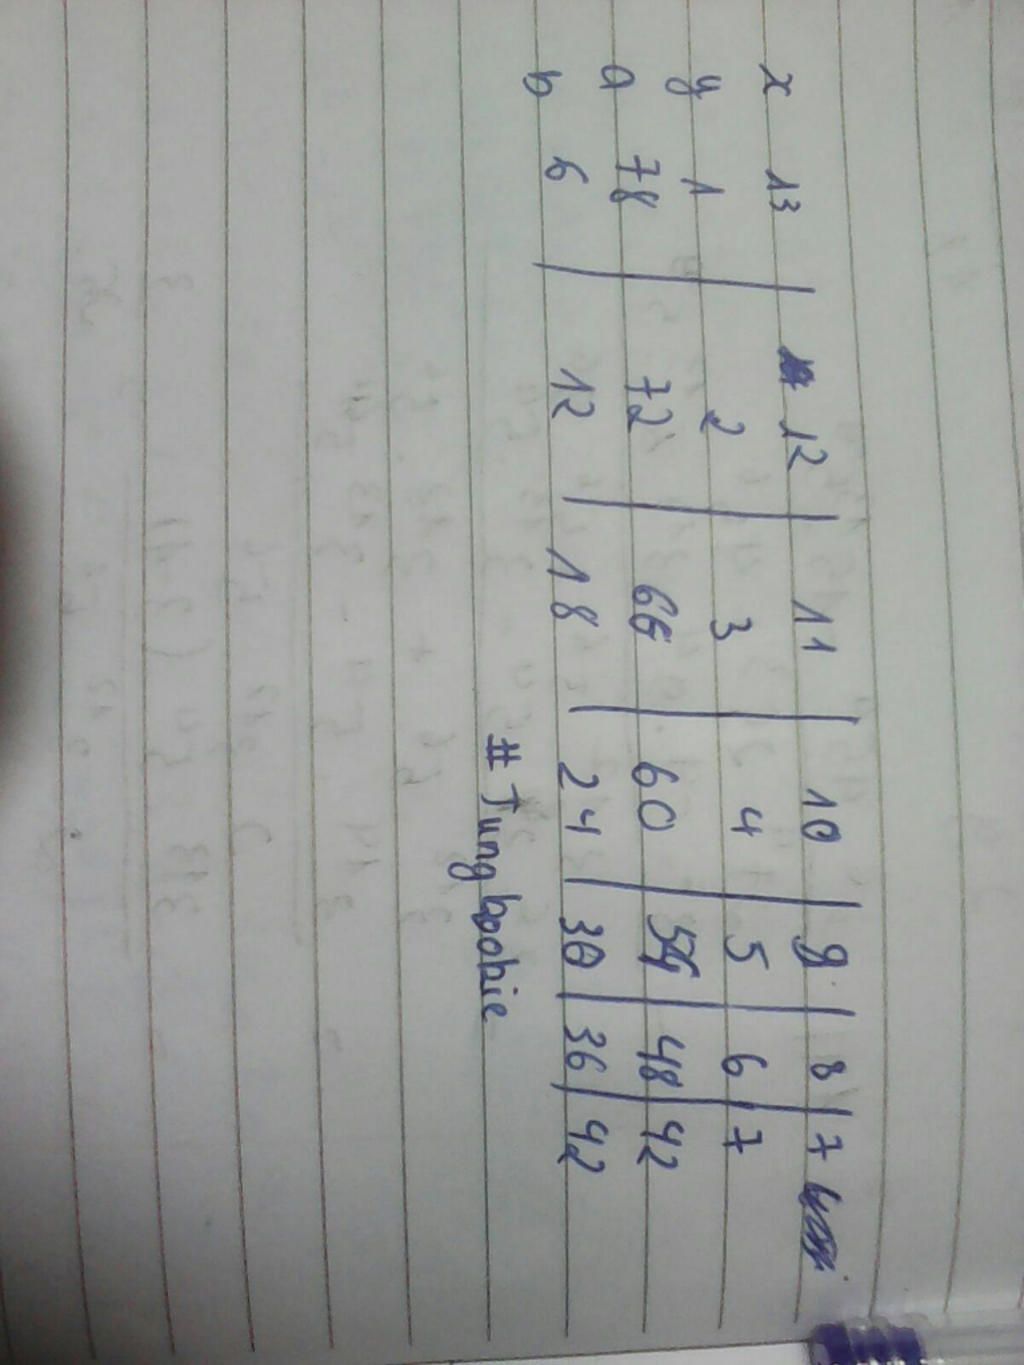 x 13 | 12 | 11 | 10 | 9 | 8 | 7
y 1 | 2 | 3 | 4 | 5 | 6 | 7
a 78 | 72 | 66 | 60 | 54 | 48 | 42
b 6 | 12 | 18 | 24 | 30 | 36 | 42
# Jungboobie